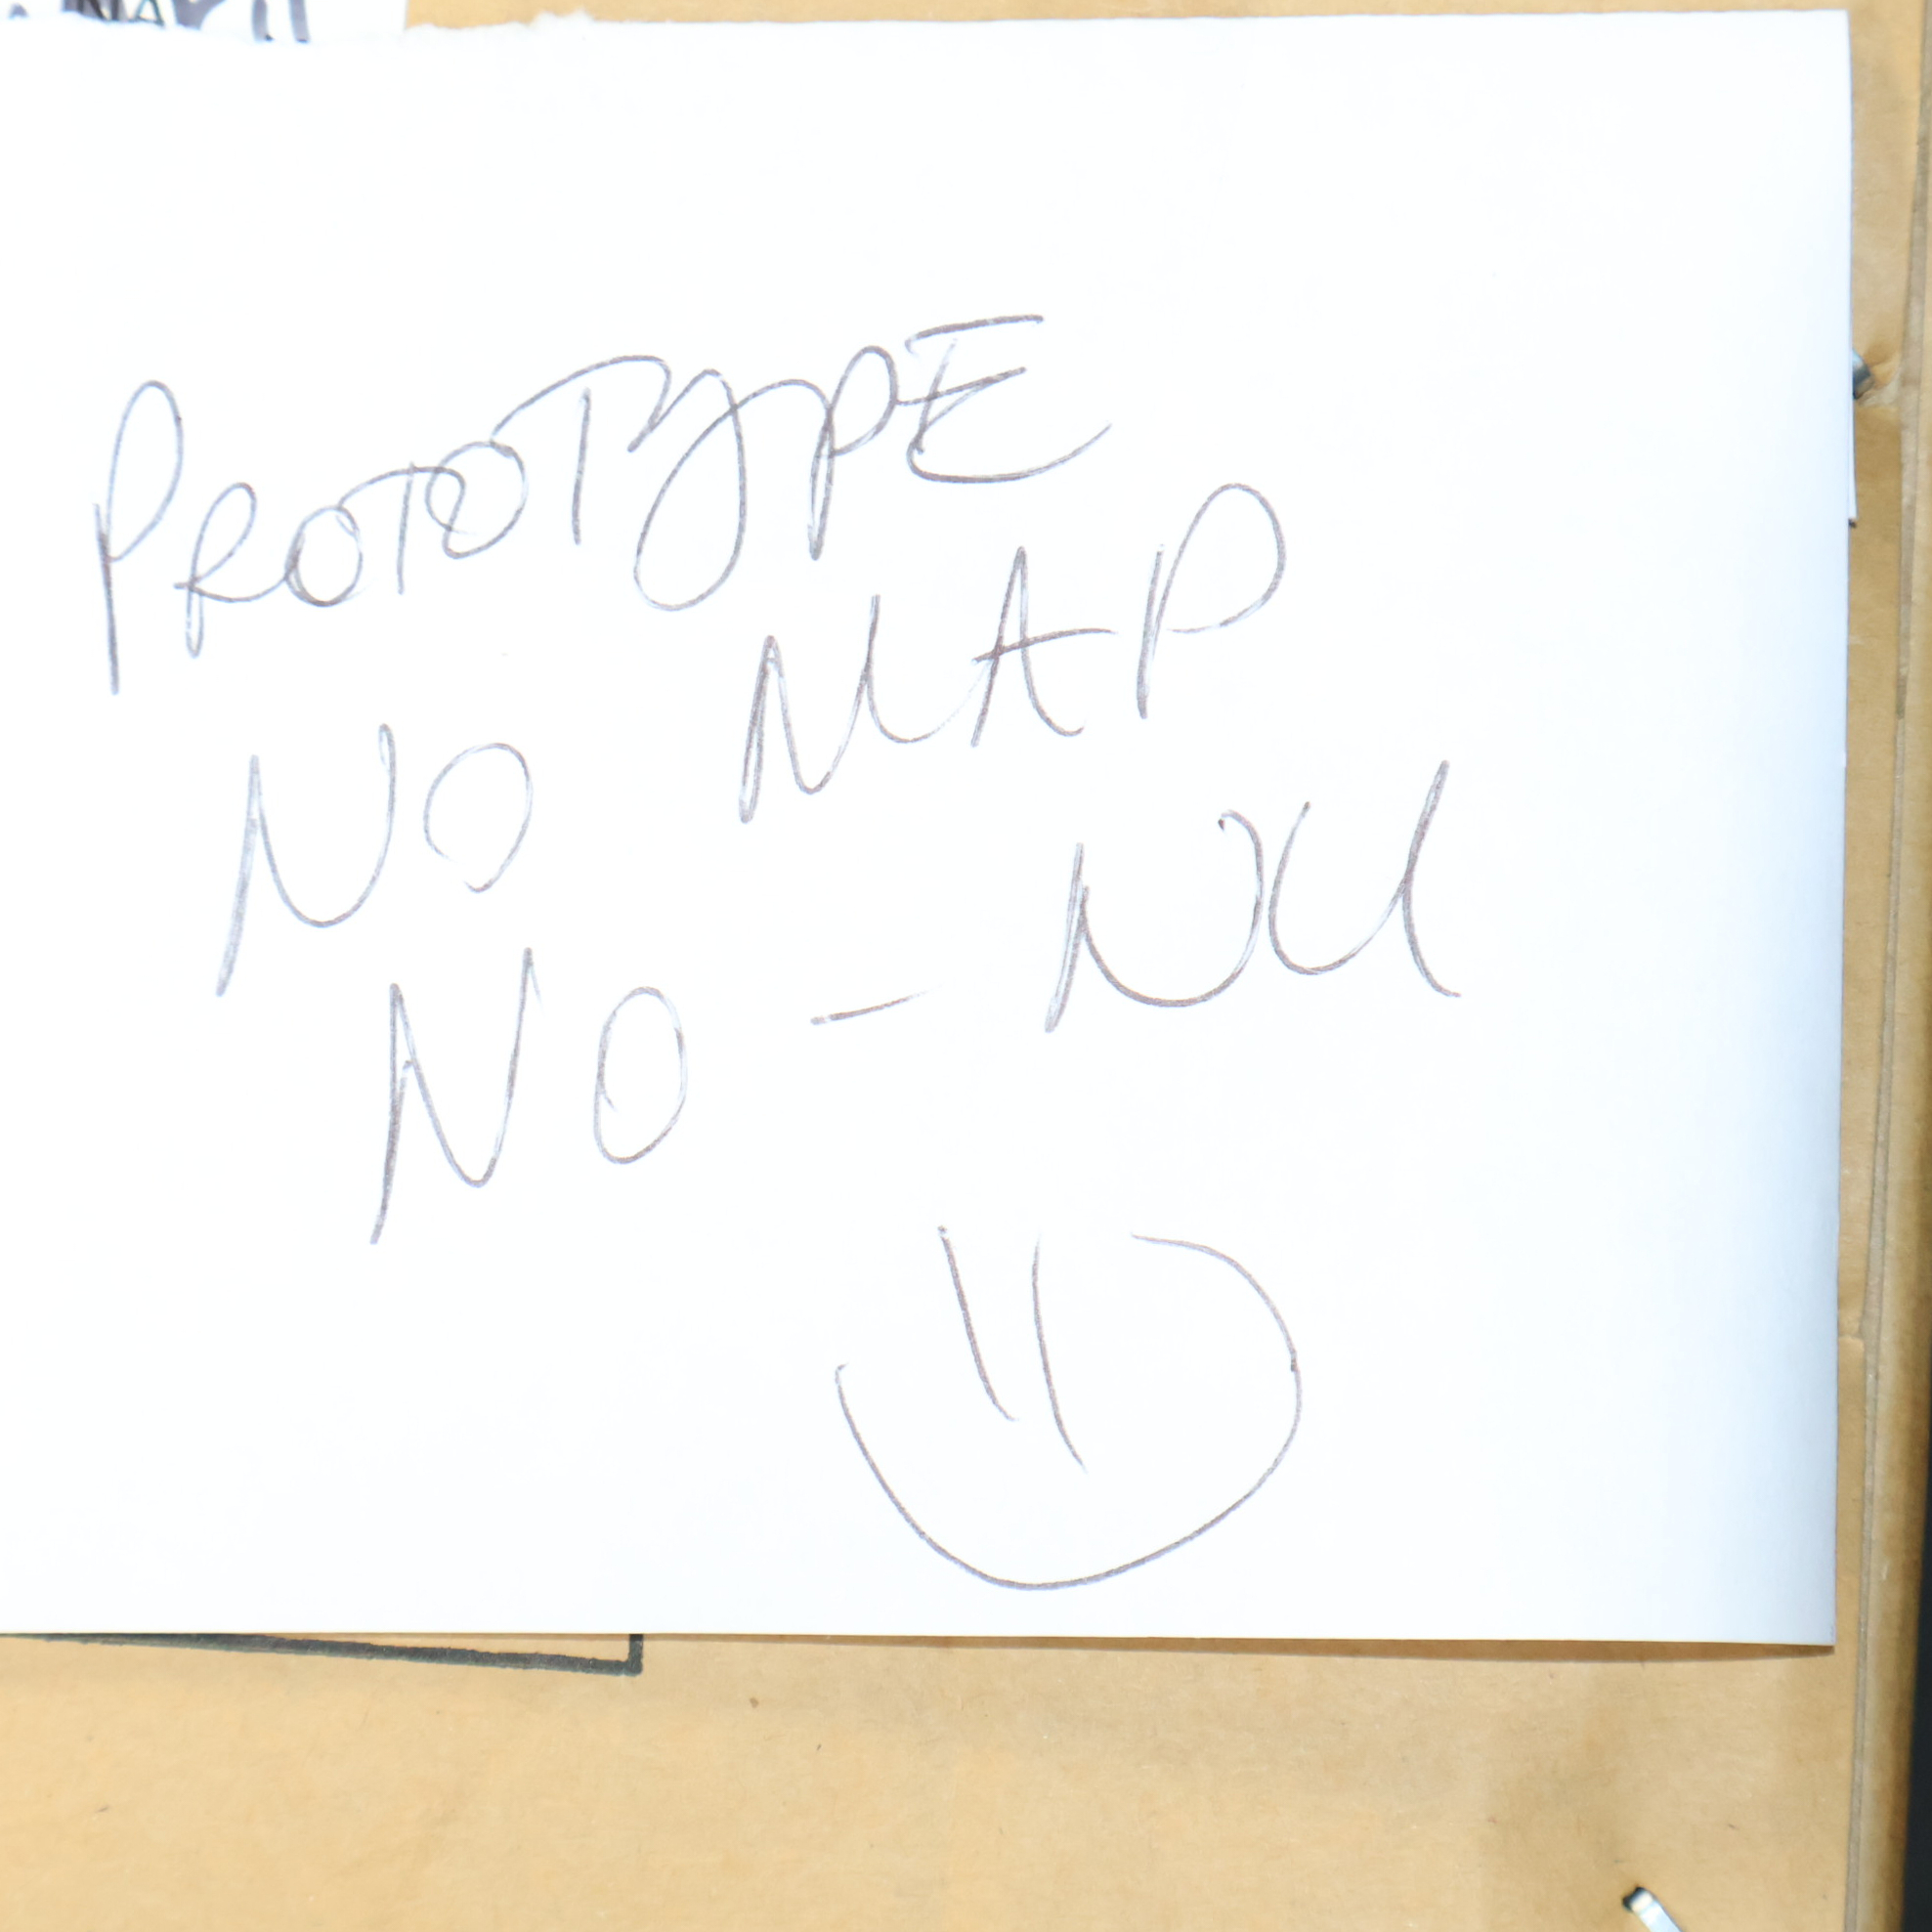 PROTOTYPE
NO MAP
NO - NU